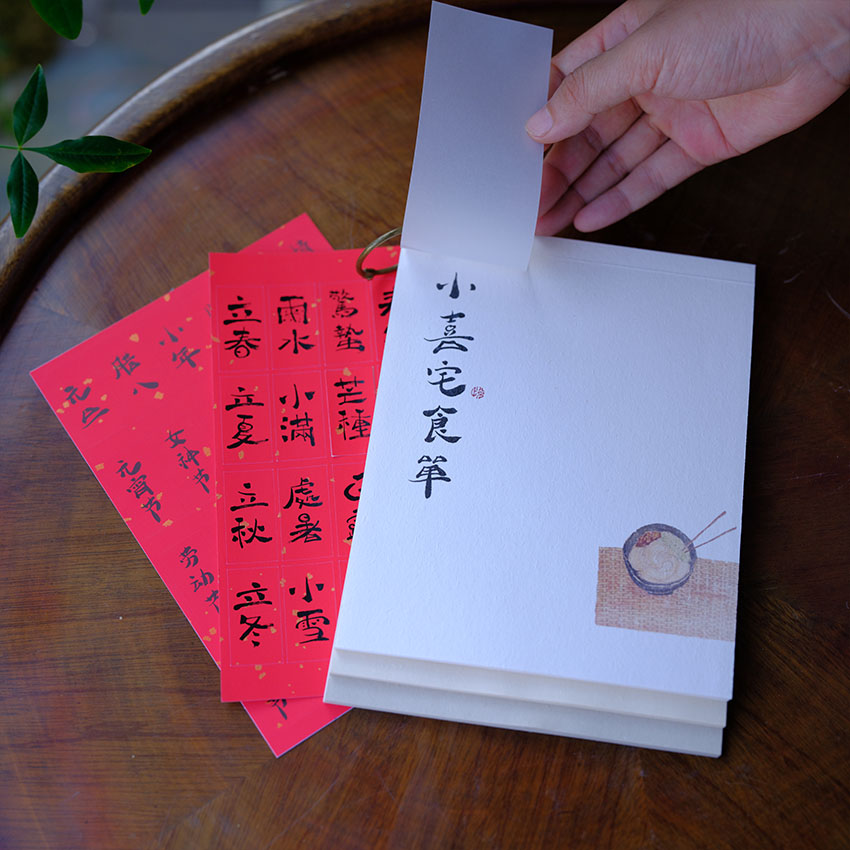 小喜宅食單
立春
雨水
驚蟄
立夏
小滿
芒種
立秋
處暑
立冬
小雪
元旦
腊八
小年
元宵节
女神节
劳动节